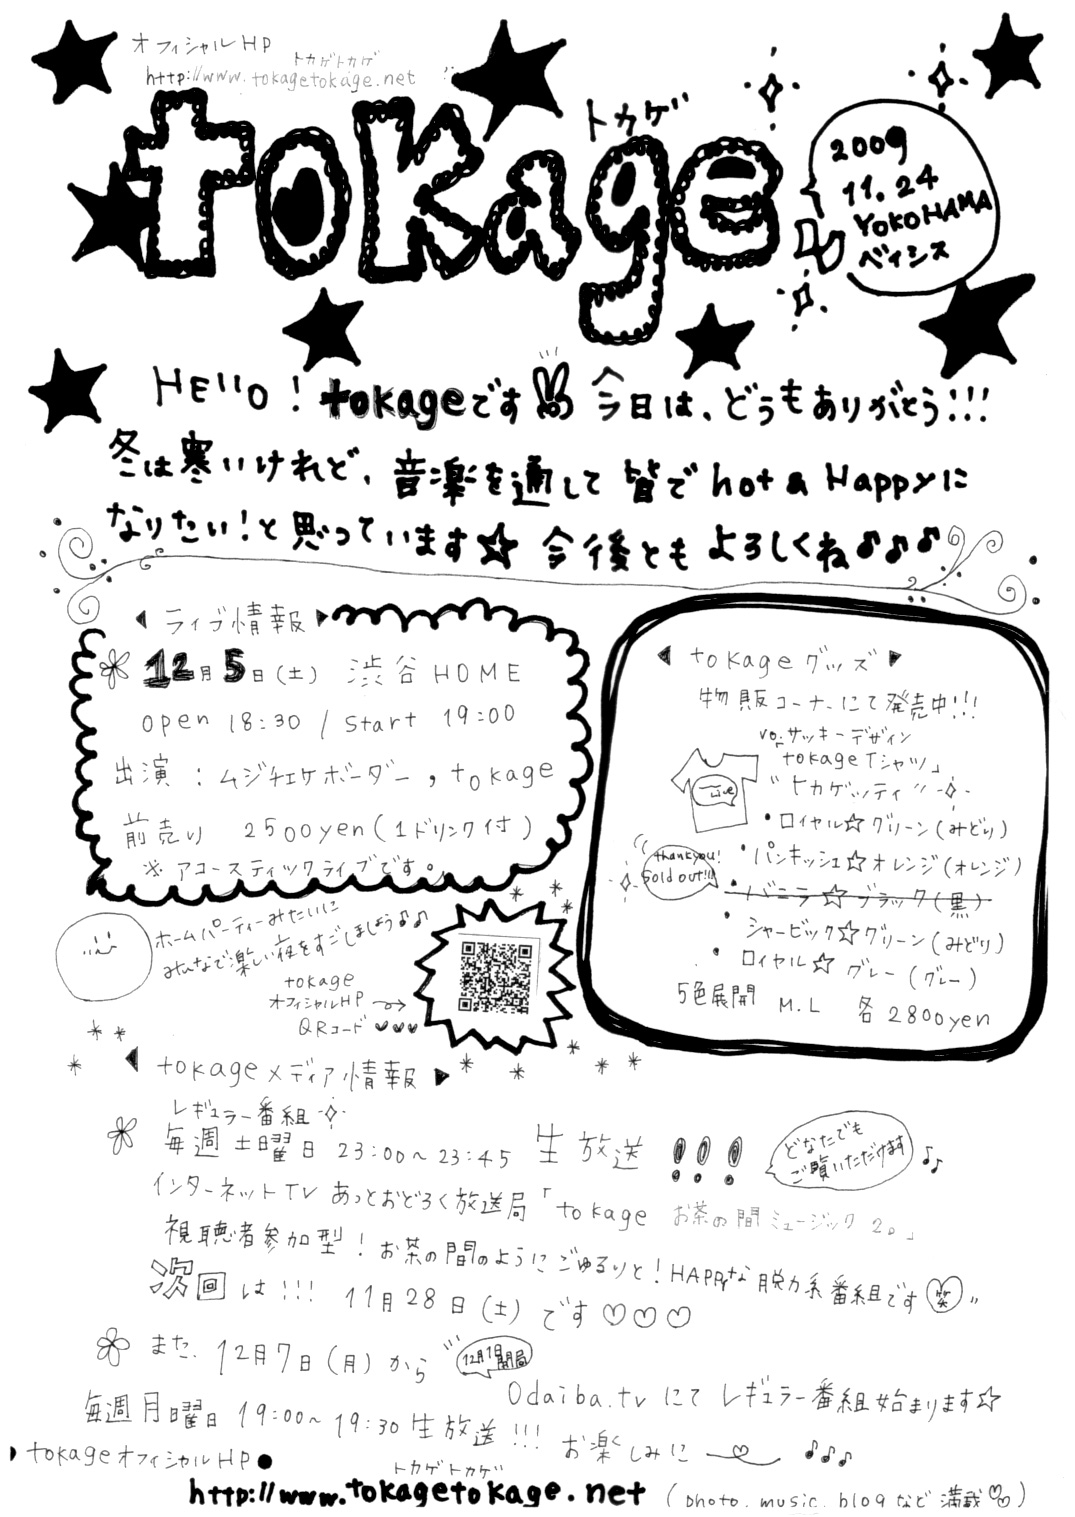 オフィシャルHP
トカゲトカゲ
http://www.tokagetokage.net
tokage
トカゲ
2009
11.24
YOKOHAMA
ベイシス
HEllO! tokageです 今日は、どうもありがとう!!!
冬は寒いけれど、音楽を通して皆でhot & Happyに
なりたい!と思っています☆ 今後ともよろしくね♪♪♪
ライブ情報
12月5日(土) 渋谷HOME
open 18:30 / Start 19:00
出演:ムジチェケボーダー, tokage
前売り 2500yen(1ドリンク付)
※アコースティックライブです。
ホームパーティーみたいに
みんなで楽しい夜をすごしましょう♪♪
tokage
オフィシャルHP
QRコード ♥♥♥
tokageグッズ
物販コーナーにて発売中!!!
vo.サッキーデザイン
「tokage Tシャツ」
"トカゲッティ"
Live
・ロイヤル☆グリーン(みどり)
・パンキッシュ☆オレンジ(オレンジ)
thankyou!
Sold out!!!
・バニラ☆ブラック(黒)
・シャービック☆グリーン(みどり)
・ロイヤル☆グレー(グレー)
5色展開 M.L 各2800yen
tokageメディア情報
レギュラー番組
毎週土曜日 23:00~23:45 生放送!!!
どなたでも
ご覧いただけます♪♪
インターネットTV あっとおどろく放送局「tokage お茶の間ミュージック2。」
視聴者参加型!お茶の間のようにごゆるりと!HAPPyな脱力系番組です(笑)"
次回は!!! 11月28日(土)です♡♡♡
また、12月7日(月)から
12月1日開局
Odaiba.tvにてレギュラー番組始まります☆
毎週月曜日 19:00~19:30生放送!!! お楽しみに ♪♪♪
tokageオフィシャルHP●
トカゲトカゲ
http://www.tokagetokage.net (photo.music.blogなど満載♡)